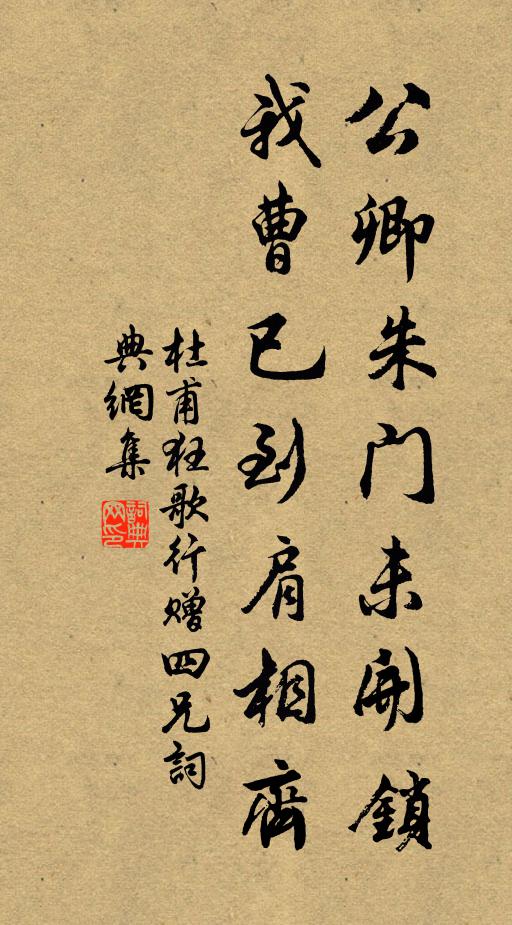 公卿朱門未開鎖
我曹已到肩相齊
杜甫狂歌行贈四兄詞
典網集
詞典網印